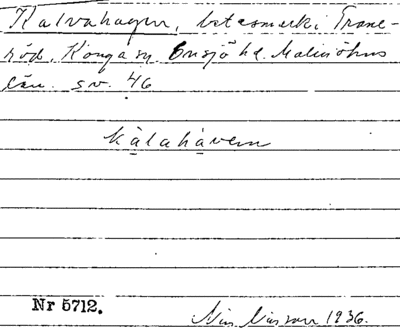 Kalvahagen, betesmark i Trane-
röd, Konga sn. Onsjö hd. Malmöhus
län. s.v. 46
kàlahàven
Nr 5712.
Nils Nilsson 1936.